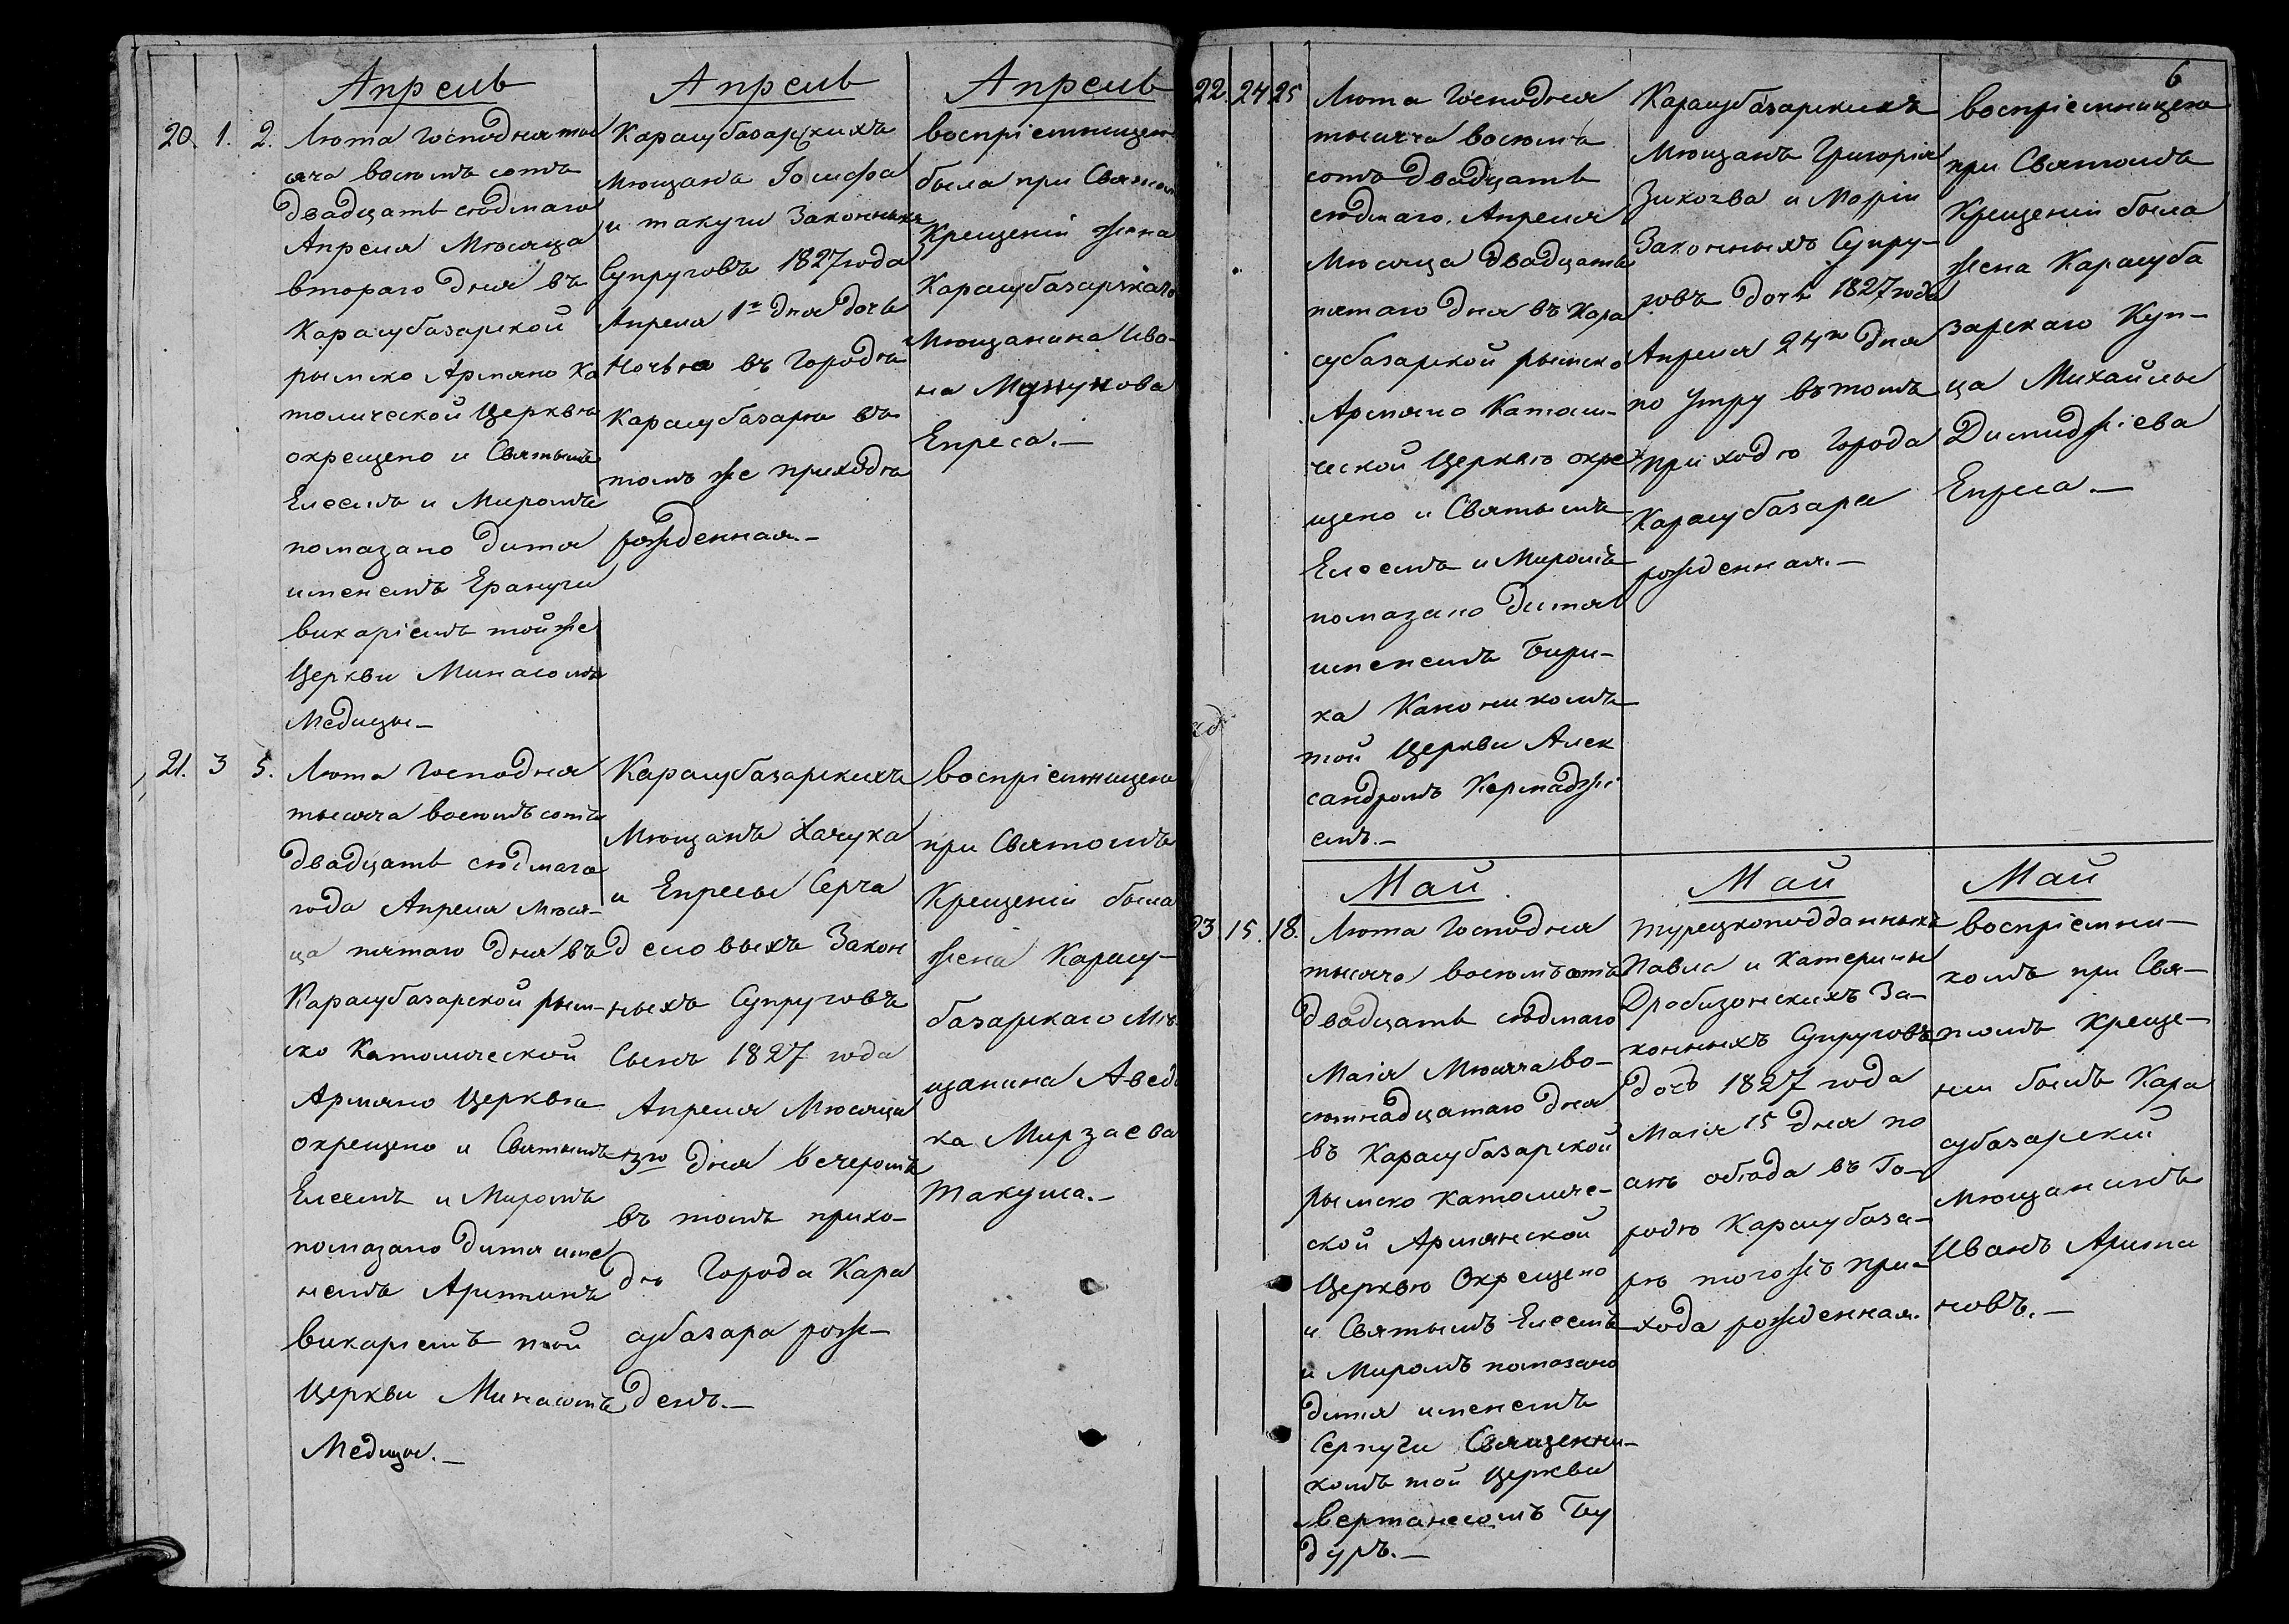 Апрель
20. 1. 2.
Лѣта Господня ты
сяча восемь сотъ
двадцать седмаго
Апреля Мѣсяца
втораго дня въ
Карасубазарской
рымско Армяно Ка
толической Церквѣ
окрещено и Святымъ
Елеемъ и Миромъ
помазано дитя
именемъ Ерануги
викаріемъ тойже
Церкви Минасомъ
Медицы—
Апрель
Карасубазарскихъ
Мѣщанъ Іосифа
и такуги Законныхъ
Супруговъ 1827 года
Апреля 1го дня дочь
Ночью въ городѣ
Карасубазарѣ въ
томъ же приходѣ
рожденная.—
Апрель
воспріемницею
была при Святом
Крещеніи жена
Карасубазарскаго
Мѣщанина Ива-
на
Епреса.—
21. 3 5.
Лѣта Господня
тысяча восемь сотъ
двадцать седмаго
года Апреля Мѣся-
ца пятаго дня въ
Карасубазарской рым-
ско Католической
Армяно Церквѣ
окрещено и Святымъ
Елеемъ и Миромъ
помазано дитя име
немъ Аритинъ
викаріемъ той
Церкви Минасомъ
Медицы.—
Карасубазарскихъ
Мѣщанъ Хачука
и Епресы Серча
деловыхъ Закон
ныхъ Супруговъ
Сынъ 1827 года
Апреля Мѣсяца
3го дня вечеромъ
въ томъ прихо-
дѣ Города Кара
субазара рож-
денъ.—
воспріемницею
при Святомъ
Крещеніи была
жена Карасу-
базарскаго Мѣ
щанина Аведи
ка Мирзаева
Такуша.—
6
22. 24 25
Лѣта Господня
тысяча восемь
сотъ двадцать
седмаго Апреля
Мѣсяца двадцать
пятаго дня въ Кара
субазарской рымско
Армяно Католи-
ческой Церквѣ окре
щено и Святымъ
Елеемъ и Миромъ
помазано дитя
именемъ Бири-
ка Каноникомъ
той Церкви Алек
сандромъ Кермаджі
емъ.—
Карасубазарскихъ
Мѣщанъ Григорія
Зикогва и Маріи
Законныхъ Супру-
говъ дочь 1827 года
Апреля 24го дня
по утру въ томъ
приходѣ Города
Карасубазара
рожденная.—
воспріемницею
при Святомъ
Крещеніи была
жена Карасуба
зарскаго Куп-
ца Михайлы
Димиджіева
Епреса—
Май
23 15. 18.
Лѣта Господня
тысяча восемь сотъ
двадцать седмаго
Маія Мѣсяча во-
семнадцатаго дня
въ Карасубазарской
Рымско Католиче-
ской Армянской
Церквѣ Окрещено
и Святымъ Елеемъ
и Миромъ помазано
дитя именемъ
Серпуги Священни-
комъ той Церкви
Вертанесомъ Бу
дуръ.—
Май
турецкоподданныхъ
Павла и Катерины
Драбизонскихъ За-
конныхъ Супруговъ
дочь 1827 года
Маія 15 дня по
слѣ обѣда въ Го-
родѣ Карасубаза-
рѣ тогожъ при-
хода рожденная.
Май
воспріемни-
комъ при Свя-
томъ Креще-
ніи былъ Кара
субазарскій
мѣщанинъ
Иванъ Арити
новъ.—